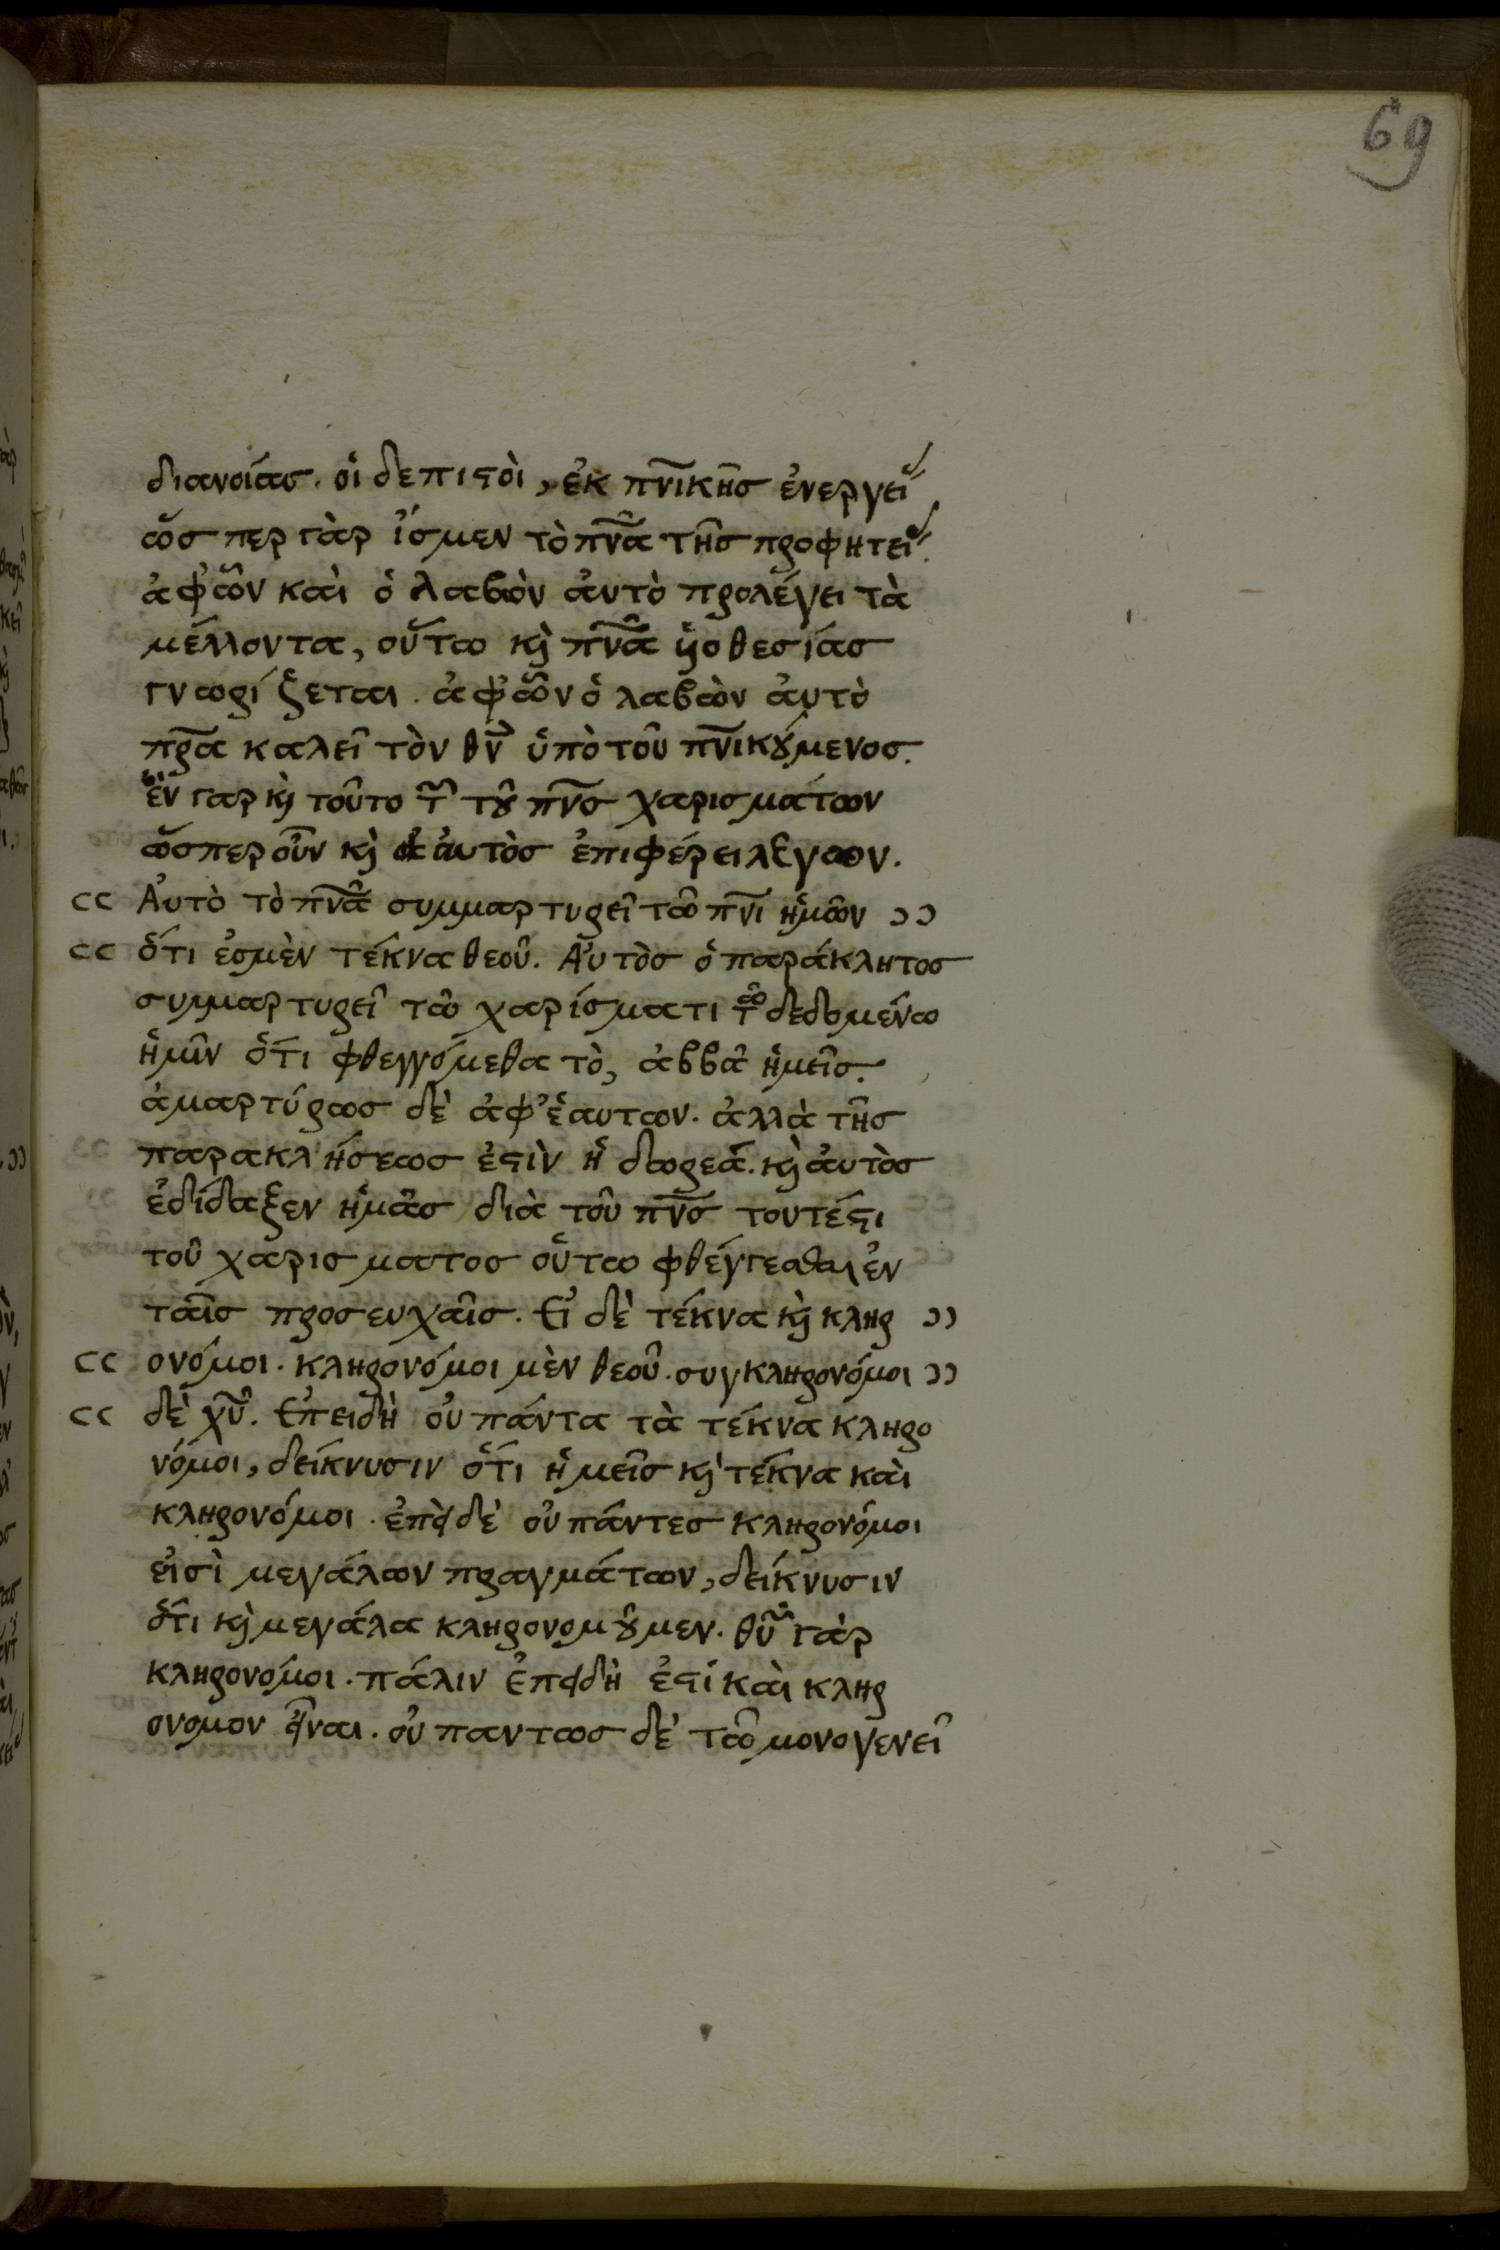 69
διανοίας. οἱ δε πιϛοὶ, ἐκ πν̅ικῆς ἐνεργεί
ὥσπερ γὰρ ἴσμεν τὸ πν̅α τῆς προφητεί
ἀφ' ὧν καὶ ὁ λαβὼν ἀυτὸ προλέγει τὰ
μέλλοντα, οὕτω κὶ πν̅α ὑιοθεσίας
γνωρίζεται. ἀφ' ὧν ὁ λαβὼν ἀυτὸ
πρ̅α καλεῖ τὸν θν̅ ὑπὸ τοῦ πν̅ι κȣ́μενος.
ἓν γαρ κὶ τοῦτο τ͂ τȣ͂ πν̅ς χαρισμάτων
ὥσπερ οὖν κὶ ἀυτὸς ἐπιφέρει λέγων.
Ἀυτὸ τὸ πν̅α συμμαρτυρεῖ τῶ πν̅ι ἡμῶν
ὅτι ἐσμὲν τέκνα θεοῦ. Ἀυτὸς ὁ παράκλητος
συμμαρτυρεῖ τῶ χαρίσματι τῶ δεδομένω
ἡμῖν ὅτι φθεγγόμεθα τὸ, ἀββᾶ ἡμεῖς.
ἀμαρτύρως δὲ ἀφ' ἑαυτων. ἀλλὰ τῆς
παρακλήσεως ἐϛὶν ἡ δωρεά. κὶ ἀυτὸς
ἐδίδαξεν ἡμᾶς διὰ τοῦ πν̅ς τουτέϛι
τοῦ χαρισματος οὕτω φθέγγεσθαι ἐν
ταῖς προσευχαῖς. Εἰ δὲ τέκνα κὶ κληρ
ονόμοι. κληρονόμοι μὲν θεοῦ. συγκληρονόμοι
δὲ χυ̅. Ἐπειδὴ οὐ πάντα τὰ τέκνα κληρο
νόμοι, δείκνυσιν ὅτι ἡμεῖς κὶ τέκνα καὶ
κληρονόμοι. ἐπεὶ δὲ οὐ πάντες κληρονόμοι
εἰσὶ μεγάλων πραγμάτων, δείκνυσιν
ὅτι κὶ μεγάλα κληρονομȣ͂μεν. θυ̅ γὰρ
κληρονόμοι. πάλιν ἐπειδὴ ἐϛί καὶ κληρ
ονομον εἶναι. οὐ παντως δὲ τῶ μονογενεῖ